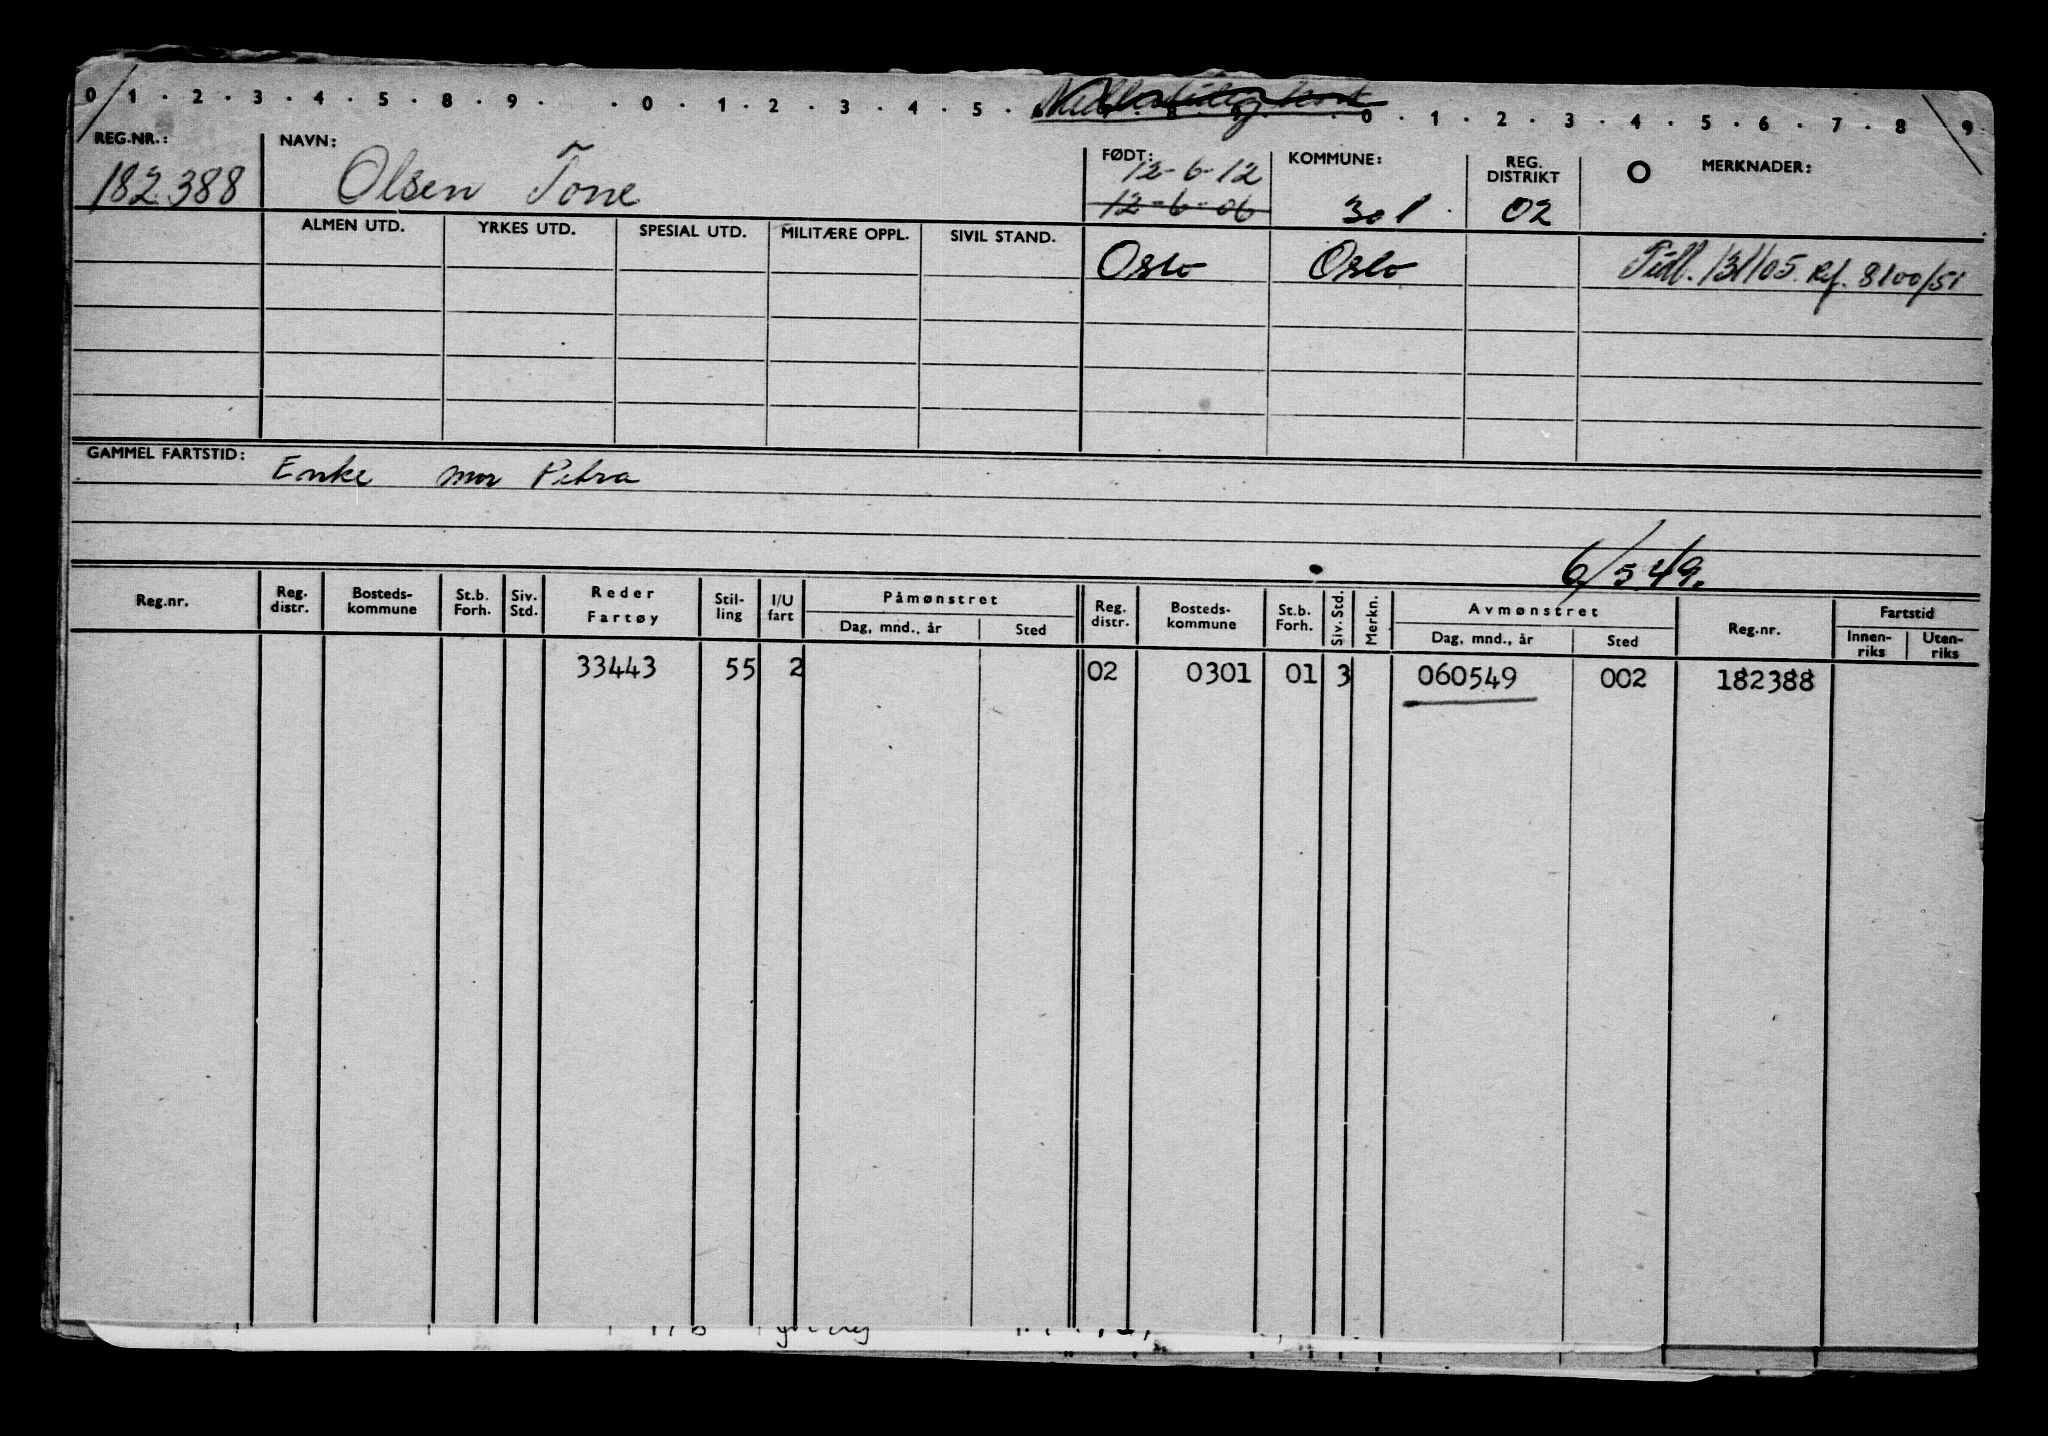 0 . 1 . 2 . 3 . 4 . 5 . 8 . 9 . . 0 . 1 . 2 . 3 . 4 . 5 . . 0 . 1 . 2 . 3 . 4 . 5 . 6 . 7 . 8 9
REG.NR.: NAVN: FØDT: KOMMUNE: REG. DISTRIKT O MERKNADER:
182388 Olsen Tone 12-6-12
12-6-06 301 02
ALMEN UTD. YRKES UTD. SPESIAL UTD. MILITÆRE OPPL. SIVIL STAND.
Oslo Oslo Tidl. 131105. Rf. 8100/51
GAMMEL FARTSTID: Enke mor Petra
6/5 49.
Reg.nr. Reg. distr. Bosteds- kommune St.b. Forh. Siv. Std. Reder Fartøy Stil- ling I/U fart Påmønstret Dag, mnd., år Sted Reg. distr. Bosteds- kommune St.b. Forh. Siv. Std. Merkn. Avmønstret Dag, mnd., år Sted Reg.nr. Fartstid Innen- riks Uten- riks
33443 55 2 02 0301 01 3 060549 002 182388